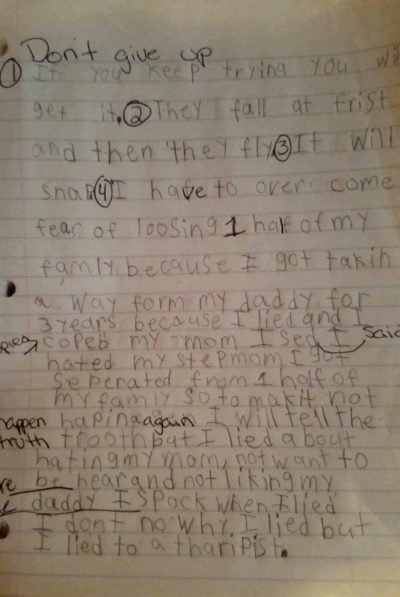 Don't give up
① If you keep trying you wi
get it. ② They fall at frist
and then they fly ③ It will
snap ④ I have to over come
fear of loosing 1 half of my
famly because I got takin
a way form my daddy for
3 years because I lied and I
copeb my mom I sed I said
hated my stepmom I got
seperated from 1 half of
my family so to makit not
happen hapina again I will tell the
truth trooth but I lied about
hating my mom, not want to
be hear and not liking my
daddy I spock when I lied
I don't no why I lied but
I lied to a tharipist.